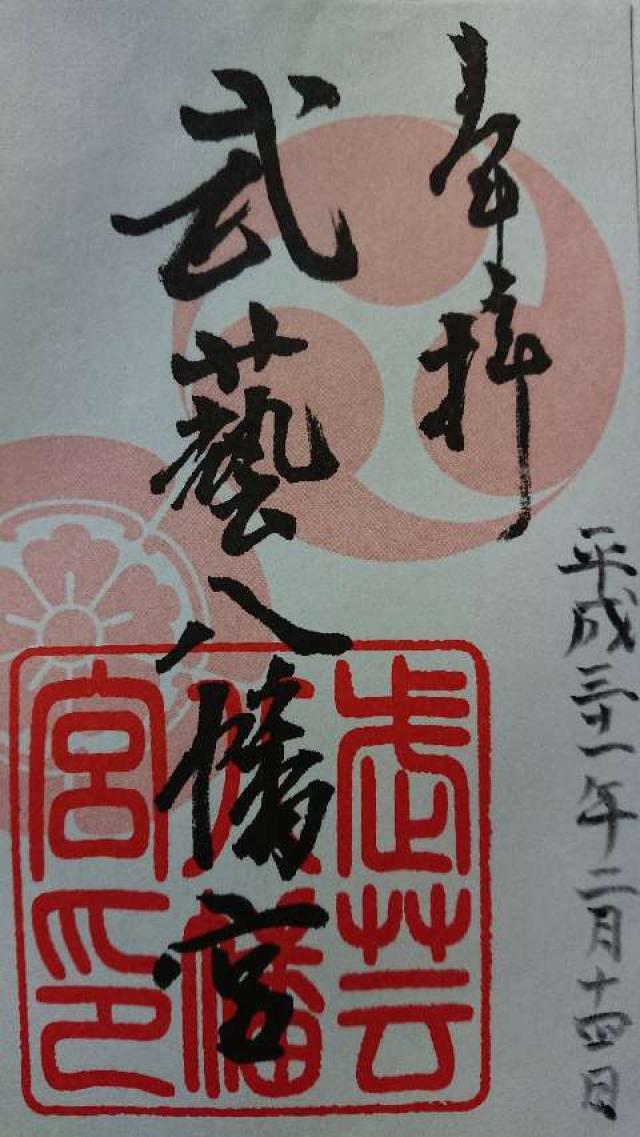 奉拝
平成三十一年二月十四日
武藝八幡宮
武芸
八幡
宮印